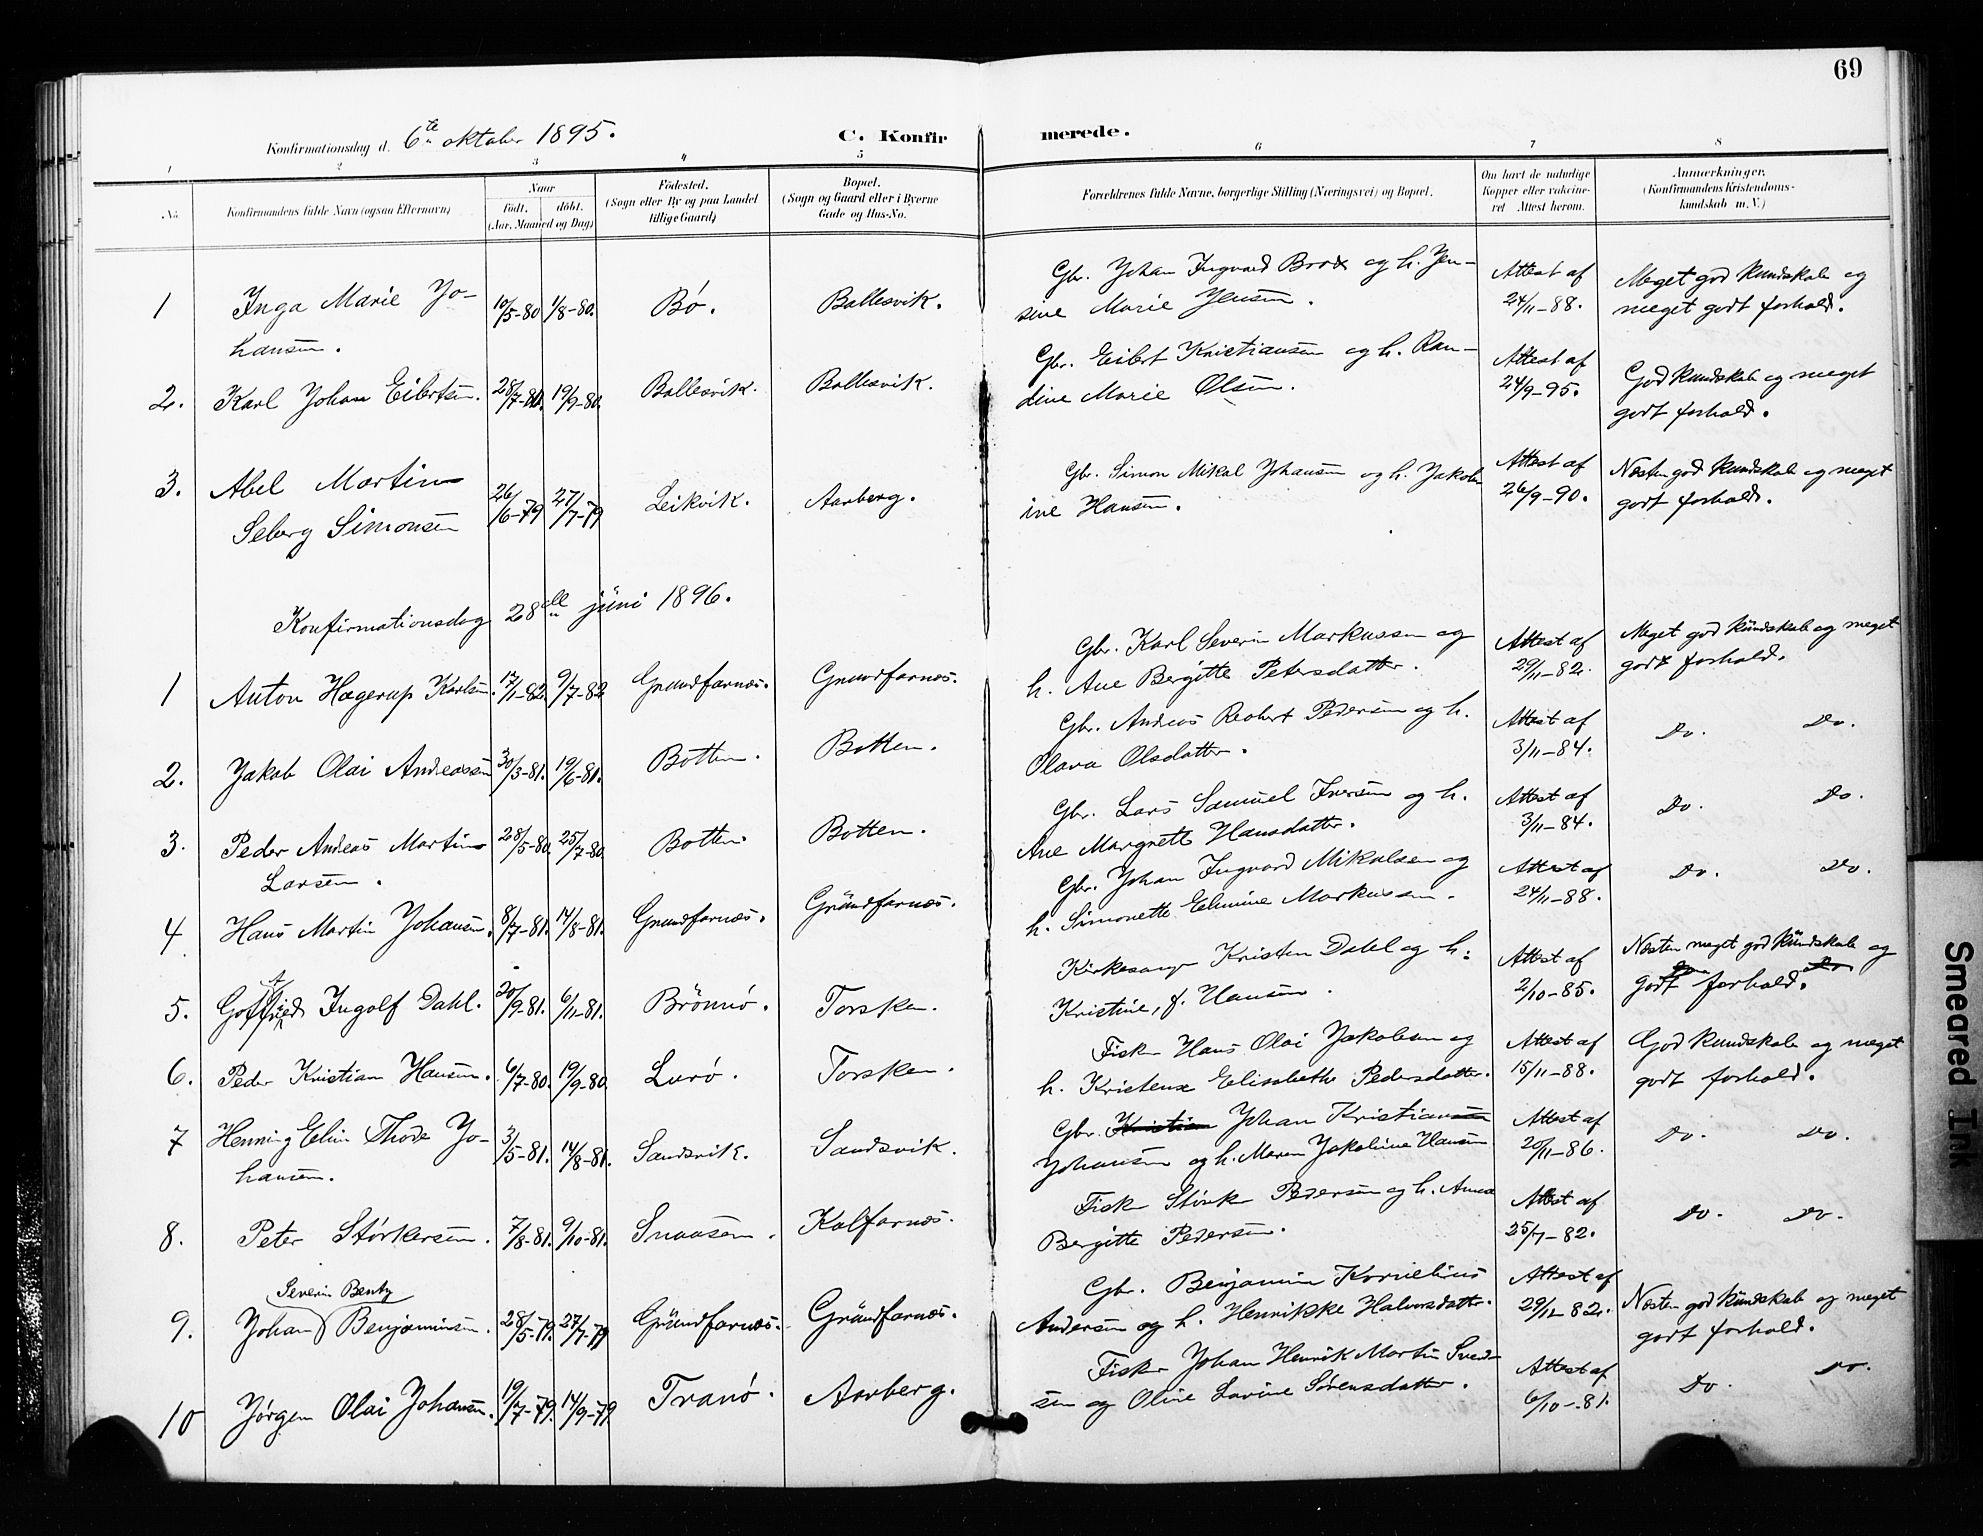 69
Konfirmationsdag d. 6te oktober 1895.
C. Konfirmerede.
1 2 3 4 5 6 7 8
No.
Konfirmandens fulde Navn (ogsaa Efternavn)
Naar
födt. döbt.
(Aar, Maaned og Dag)
Födested.
(Sogn eller By og paa Landet
tillige Gaard)
Bopæl.
(Sogn og Gaard eller i Byerne
Gade og Hus-No.
Forældrenes fulde Navne, borgerlige Stilling (Næringsvei) og Bopæl.
Om havt de naturlige
Kopper eller vakcine-
ret Attest herom.
Anmærkninger.
(Konfirmandens Kristendoms-
kundskab m. V.)
1 Inga Marie Jo- 10/5-80 1/8-80. Bø. Ballesvik. Gbr. Johan Ingvard Brox og h. Jen- Attest af Meget god kundskab og
hansen. sine Marie Jensen. 24/11-88. meget godt forhold.
2. Karl Johan Eibertsen. 28/7-80. 19/9-80. Ballesvik. Ballesvik. Gbr. Eibert Kristiansen og h. Ran- Attest af God kundskab og meget
dine Marie Olsen. 24/9-95. godt forhold.
3. Abel Martin 26/6-79 27/7-79 Leikvik. Aarberg. Gbr. Simon Mikal Johansen og h. Jakob- Attest af Næsten god kundskab og meget
Seberg Simonsen ine Hansen. 26/9-90. godt forhold.
Konfirmationsdag 28de juni 1896.
1 Anton Hagerup Karlsen. 17/1-82. 9/7-82 Grundfarnæs. Grundfarnæs. Gbr. Karl Severin Markussen og Attest af Meget god kundskab og meget
h. Ane Bergitte Petersdatter. 29/11-82. godt forhold.
2. Jakob Olai Andreassen 30/3-81. 19/6-81. Botten. Botten. Gbr. Andreas Reobert Pedersen og h. Attest af Do. Do.
Olava Olsdatter. 3/11-84.
3. Peder Andreas Martin 28/5-80. 25/7-80. Botten. Botten. Gbr. Lars Samuel Iversen og h. Attest af Do. Do.
Larsen. Ane Margrete Hansdatter. 3/11-84.
4 Hans Martin Johansen. 8/7-81. 14/8-81. Grundfarnæs. Grundfarnæs. Gbr. Johan Ingvard Mikalsen og Attest af Do. Do.
h. Simonette Elimine Markussen. 24/11-88.
5. Gotfried Ingolf Dahl. 20/9-81. 6/11-81. Brønnø. Torsken. Kirkesanger Kristen Dahl og h: Attest af Næsten meget god kundskab og
Kristine, f. Hansen. 2/10-85. godt forhold.
6. Peder Kristian Hansen. 6/7-80. 19/9-80. Lurø. Torsken. Fisker Hans Olai Jakobsen og Attest af God kundskab og meget
h. Kristense Elisabeth Pedersdatter. 15/11-88. godt forhold.
7 Henning Elin Thode Jo- 3/5-81. 14/8-81. Sandsvik. Sandsvik. Gbr. Kristian Johan Kristiansen Attest af Do. Do.
hansen. Johansen og h. Maren Jakobine Hansen 20/11-86.
8. Peter Størkersen. 7/8-81. 9/10-81. Snaasen. Kalfarnæs. Fisker Størker Pedersen og h. Anna Attest af Do. Do.
Bergitte Pedersen. 25/7-82.
Severin Bentz
9. Johan Benjaminsen. 28/5-79. 27/7-79 Grundfarnæs. Grundfarnæs. Gbr. Benjamin Kornelius Attest af Næsten god kundskab og meget
Andersen og h. Henrikke Halvorsdatter. 29/12-82. godt forhold.
10 Jørgen Olai Johansen. 19/7-79. 14/9-79 Tranø. Aarberg. Fisker Johan Henrik Martin Svend- Attest af Do. Do.
sen og Oline Lovine Sørensdatter. 6/10-81.
Smeared Ink